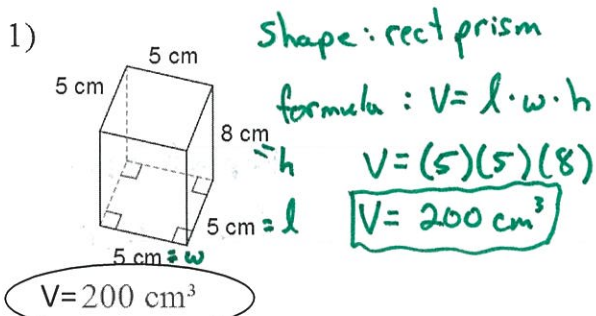 1)
5 cm
5 cm
8 cm
= h
5 cm = l
5 cm = w
V=200 cm³
shape: rect prism
formula : V= l·w·h
V=(5)(5)(8)
V= 200 cm³